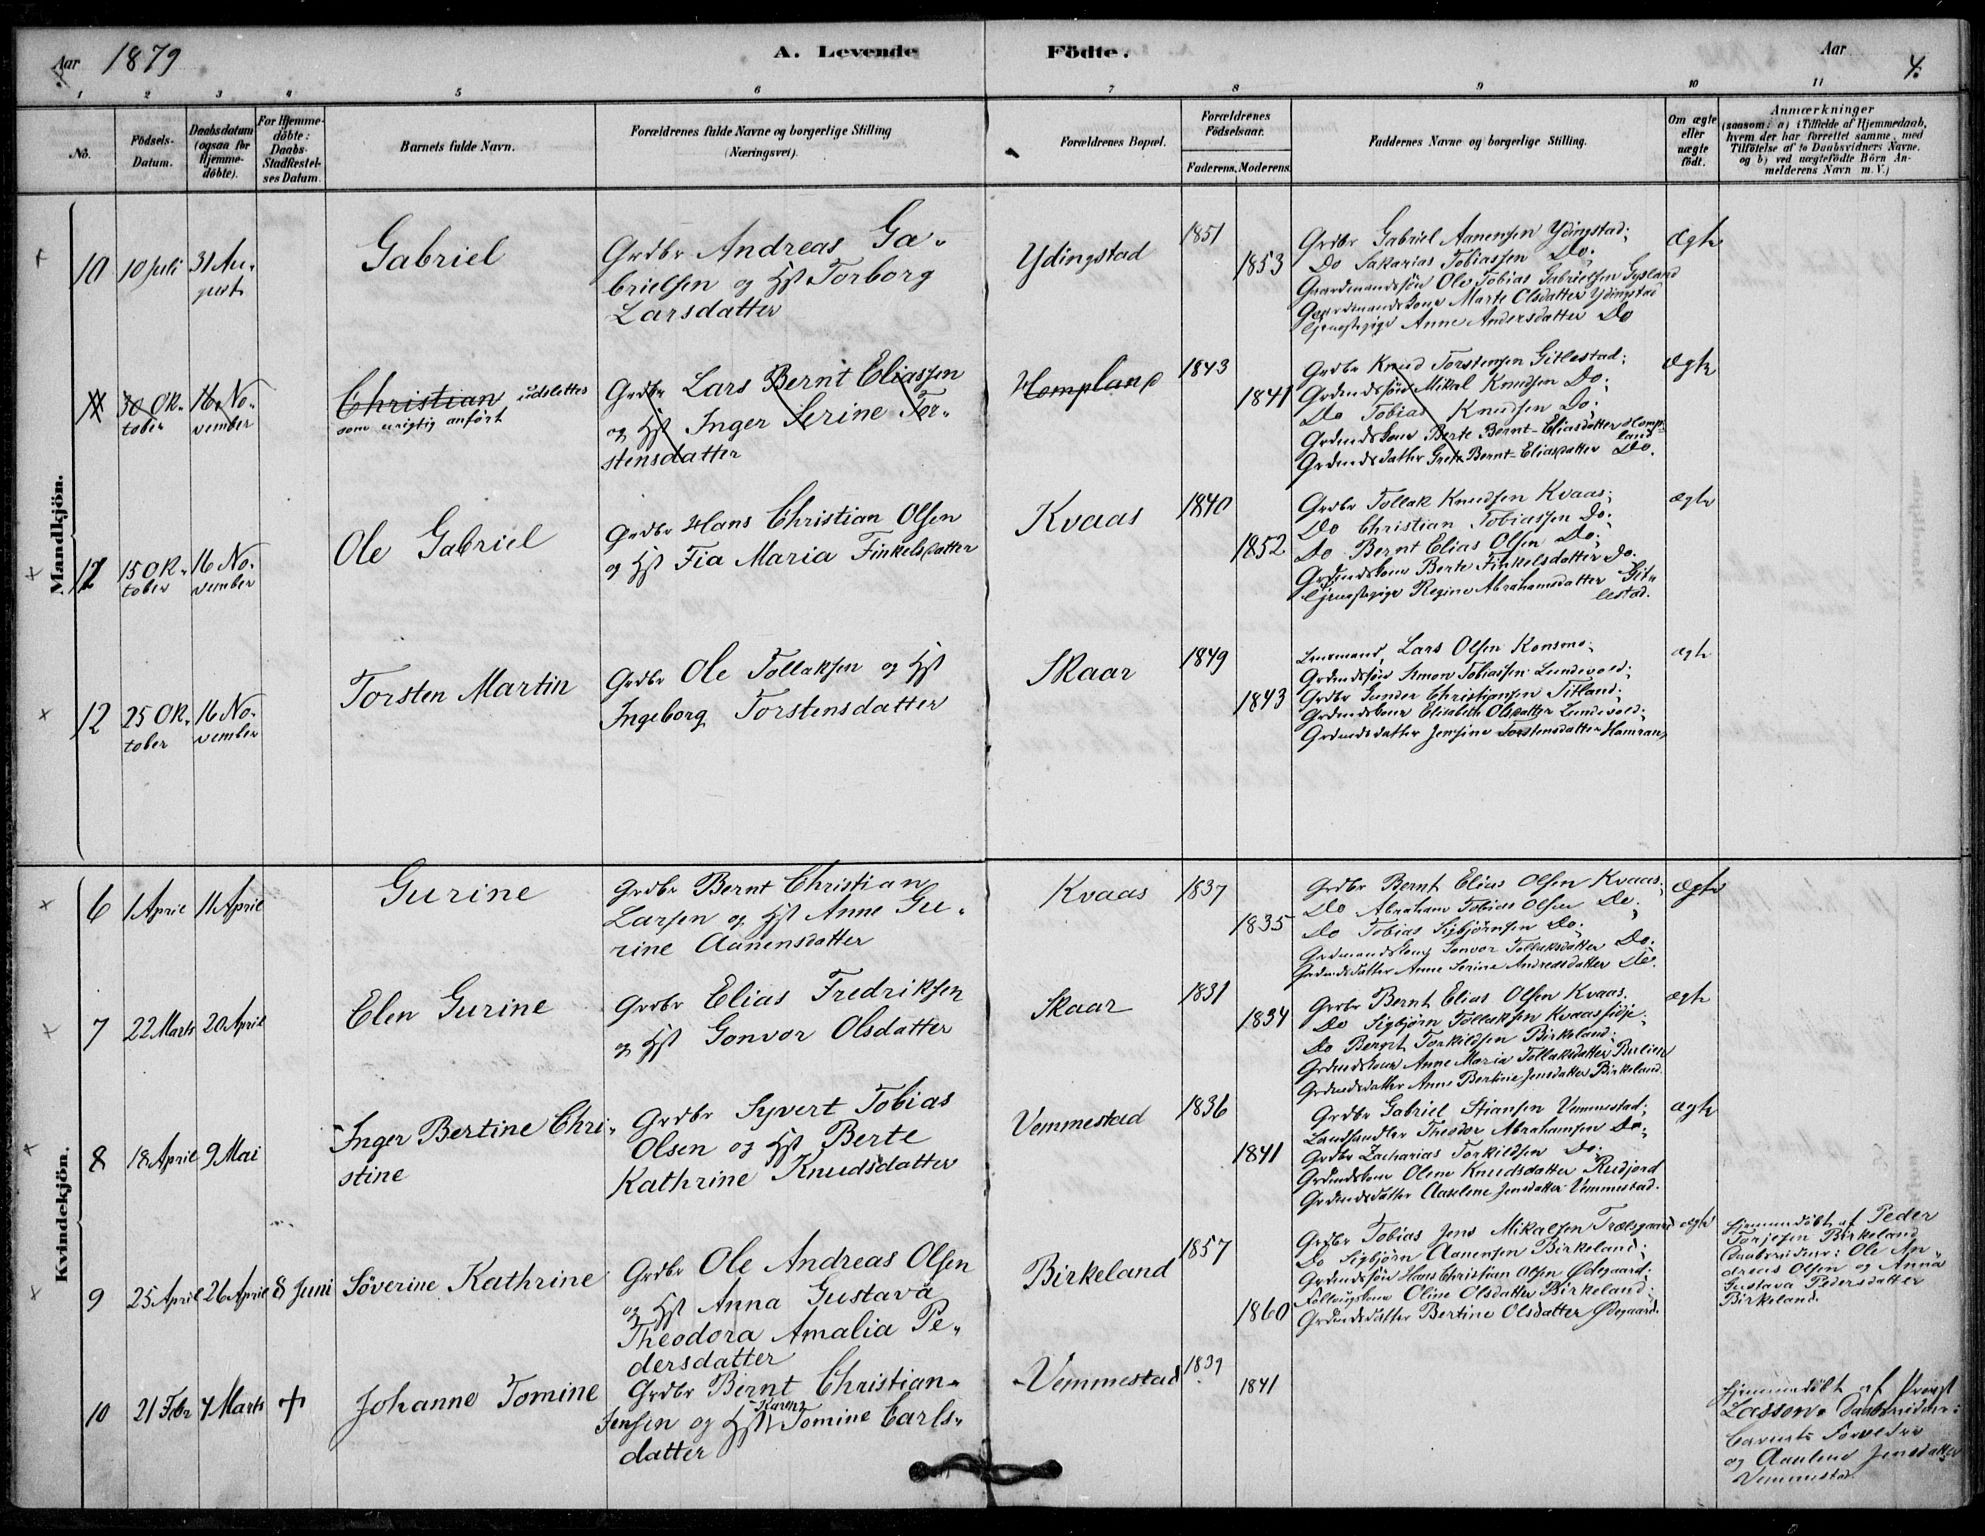 Aar 1879 A. Levende Födte. Aar 4.
1 2 3 4 5 6 7 8 9 10 11
No.
Födsels-Datum.
Daabsdatum (ogsaa for Hjemme-döbte).
For Hjemme-döbte: Daabs-Stadfæstel-ses Datum.
Barnets fulde Navn.
Forældrenes fulde Navne og borgerlige Stilling
(Næringsvei).
Forældrenes Bopæl.
Forældrenes Födselsaar.
Faderens. Moderens.
Faddernes Navne og borgerlige Stilling.
Om ægte eller uægte födt.
Anmærkninger
(saasom: a) i Tilfælde af Hjemmedaab,
hvem der har forrettet samme, med
Tilföielse af to Daabsvidners Navne,
og b) ved uægtefödte Börn An-
melderens Navn m. V.)
Mandkjön.
10 10 Juli 31 Au-
gust
Gabriel
Grdbr Andreas Ga-
brielsen og Hst Torborg
Larsdatter
Ydingstad
1851
1853
Grdbr Gabriel Aanensen Ydingstad;
Do Sakarias Tobiassen Do;
Gaardmandssön Ole Tobias Gabrielsen Gysland
Gaardmandskone Marte Olsdatter Ydingstad
Tjenestepige Anne Andersdatter Do
Ægte
11 30 Ok-
tober
16 No-
vember
Christian udslettes
som urigtig anfört
Grdbr Lars Bernt Eliassen
og Hst Inger Serine Tor-
stensdatter
Hompland
1843
1841
Grdbr Knud Torstensen Gitlestad;
Grdmdssön Mikal Knudsen Do;
Do Tobias Knudsen Do;
Grdmdskone Berte Bernt-Eliasdatter Homp-
land
Grdmdsdatter Grete Bernt-Eliasdatter Do.
Ægte
12 15 Ok-
tober
16 No-
vember
Ole Gabriel
Grdbr Hans Christian Olsen
og Hst Fia Maria Finkelsdatter
Kvaas
1840
1852
Grdbr Tollak Knudsen Kvaas;
Do Christian Tobiassen Do;
Do Bernt Elias Olsen Do;
Grdmdskone Berte Finkelsdatter Do.
Tjenestepige Regine Abrahamsdatter Git-
lestad.
ægte
12 25 Ok-
tober
16 No-
vember
Torsten Martin
Grdbr Ole Tollaksen og Hst
Ingeborg Torstensdatter
Skaar
1849
1843
Lensmand Lars Olsen Konsmo;
Grdmdssön Simon Tobiassen Lundevold;
Grdbr Gunder Christiansen Titland;
Grdmdskone Elisabeth Olsdatter Lundevold;
Grdmdsdatter Jensine Torstensdatter Hamran
ægte
Kvindekjön.
6 1 April 11 April
Gurine
Grdbr Bernt Christian
Larsen og Hst Anne Gu-
rine Aanensdatter
Kvaas
1837
1835
Grdbr Bernt Elias Olsen Kvaas;
Do Abraham Tobias Olsen Do;
Do Tobias Sigbjörnsen Do;
Grdmandskone Gonvor Tollaksdatter Do;
Grdmdsdatter Anne Serine Andreasdatter Do.
Ægte
7 22 Marts 20 April
Elen Gurine
Grdbr Elias Fredriksen
og Hst Gonvor Olsdatter
Skaar
1831
1834
Grdbr Bernt Elias Olsen Kvaas.
Do Sigbjörn Tollaksen Kvaassidje.
Do Bernt Torkildsen Birkeland;
Grdmdskone Anne Maria Tollaksdatter Berlien
Grdmdsdatter Anne Bertine Jensdatter Birkeland.
ægte
8 18 April 9 Mai
Inger Bertine Chri-
stine
Grdbr Syvert Tobias
Olsen og Hst Berte
Kathrine Knudsdatter
Vemmestad
1836
1841
Grdbr Gabriel Stiansen Vemmestad;
Landhandler Theodor Abrahamsen Do.
Grdbr Zacharias Torkildsen Do.
Grdmdskone Olene Knudsdatter Rudjord
Grdmdsdatter Aaselene Jensdatter Vemmestad.
ægte
9 25 April 26 April 8 Juni
Söverine Kathrine
Grdbr Ole Andreas Olsen
og Hst Anna Gustava
Theodora Amalia Pe-
dersdatter
Birkeland
1857
1860
Grdbr Tobias Jens Mikalsen Trælsgaard
Do Sigbjörn Aanensen Birkeland;
Grdmdssön Hans Christian Olsen Ødegaard;
Oline Olsdatter Birkeland;
Grdmdsdatter Bertine Olsdatter Ødegaard.
ægte
Hjemmedöbt af Peder
Torjesen Birkeland
Daabsvidner: Ole An-
dreas Olsen og Anna
Gustava Pedersdatter
Birkeland.
10 21 Febr 7 Marts +
Johanne Tomine
Grdbr Bernt Christian
Jensen og Hst Karen Tomine Carls-
datter
Vemmestad
1839
1841
Hjemmedöbt af Provst
Lassen. Daabsvidner:
Barnets Forældre
og Aaselene Jensdatter
Vemmestad.